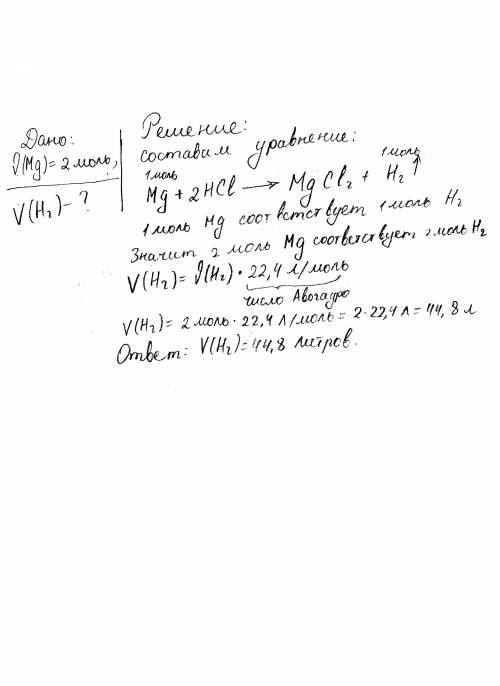 Дано:
ϑ(Mg)= 2 моль,
V(H₂) - ?
Решение:
составим уравнение:
1 моль 1 моль
Mg + 2HCl → MgCl₂ + H₂↑
1 моль Mg соответствует 1 моль H₂
Значит 2 моль Mg соответствует 2 моль H₂
V(H₂) = ϑ(H₂) · 22,4 л/моль
число Авогадро
V(H₂) = 2 моль · 22,4 л/моль = 2·22,4 л = 44,8 л
Ответ: V(H₂) = 44,8 литров.